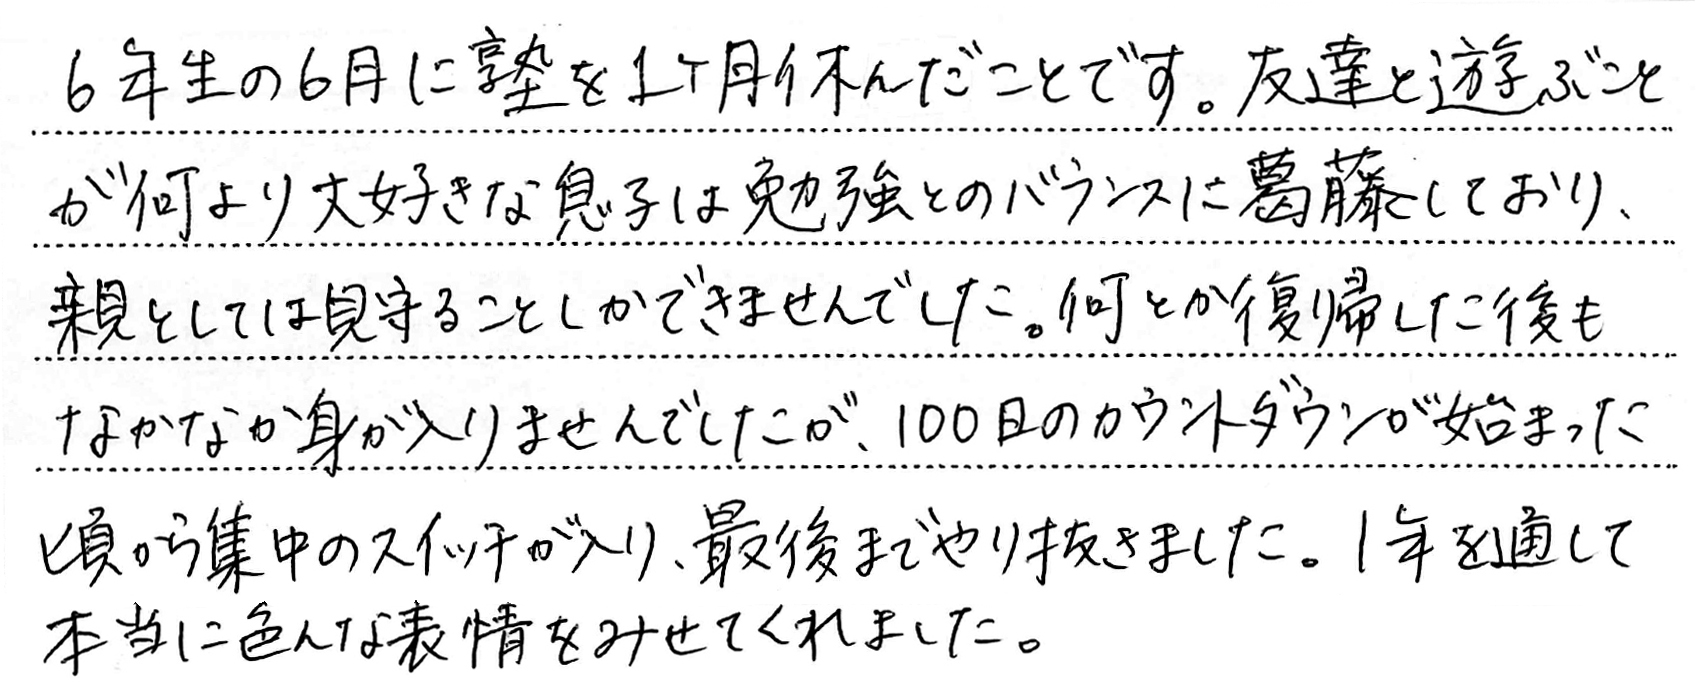 6年生の6月に塾を1ヶ月休んだことです。友達と遊ぶこと
が何より大好きな息子は勉強とのバランスに葛藤しており、
親としては見守ることしかできませんでした。何とか復帰した後も
なかなか身が入りませんでしたが、100日のカウントダウンが始まった
頃から集中のスイッチが入り、最後までやり抜きました。1年を通して
本当に色んな表情をみせてくれました。